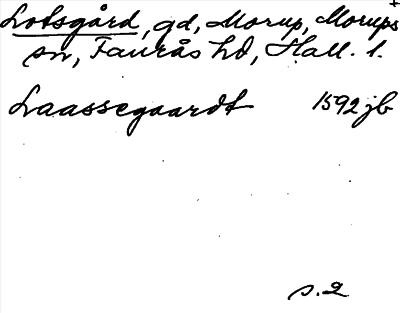 +
Lotsgård, gd, Morup, Morups
sn, Faurås hd, Hall. l.
Laassegaardt 1592 jb
s. 2